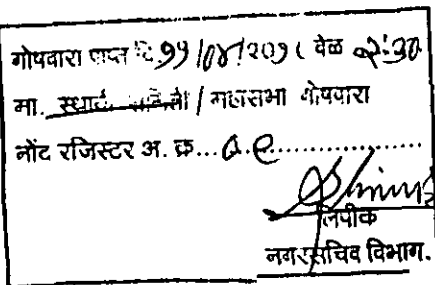 गोषवारा प्राप्त दि. ११/०४/२०१८ वेळ २:३०
मा. स्थायी समिती / महासभा गोषवारा
नोंद रजिस्टर अ. क्र...
लिपीक
नगरसचिव विभाग.